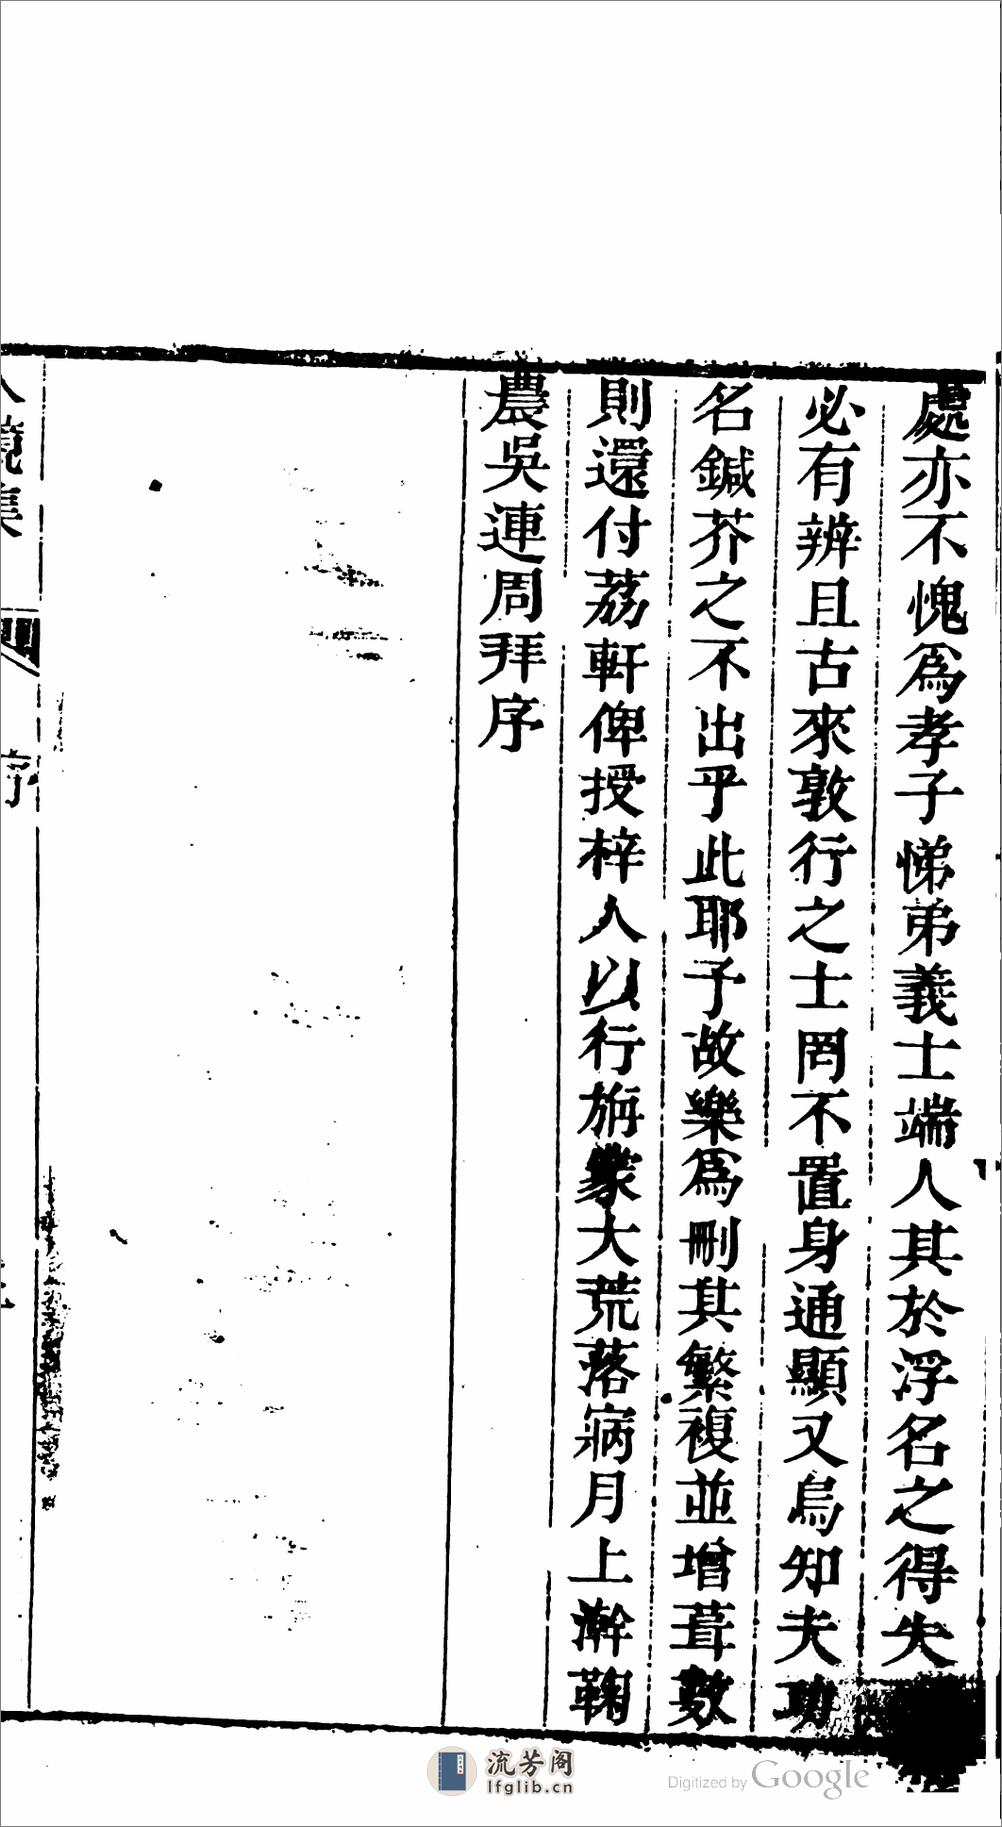 處亦不愧爲孝子悌弟義士端人其於浮名之得失
必有辨且古來敦行之士罔不置身通顯又烏知夫功
名鍼芥之不出乎此耶予故樂爲刪其繁複並增葺數
則還付荔軒俾授梓人以行旃蒙大荒落寎月上澣鞠
農吳連周拜序
人鏡集
序
流芳阁
lfglib.cn
Digitized by Google